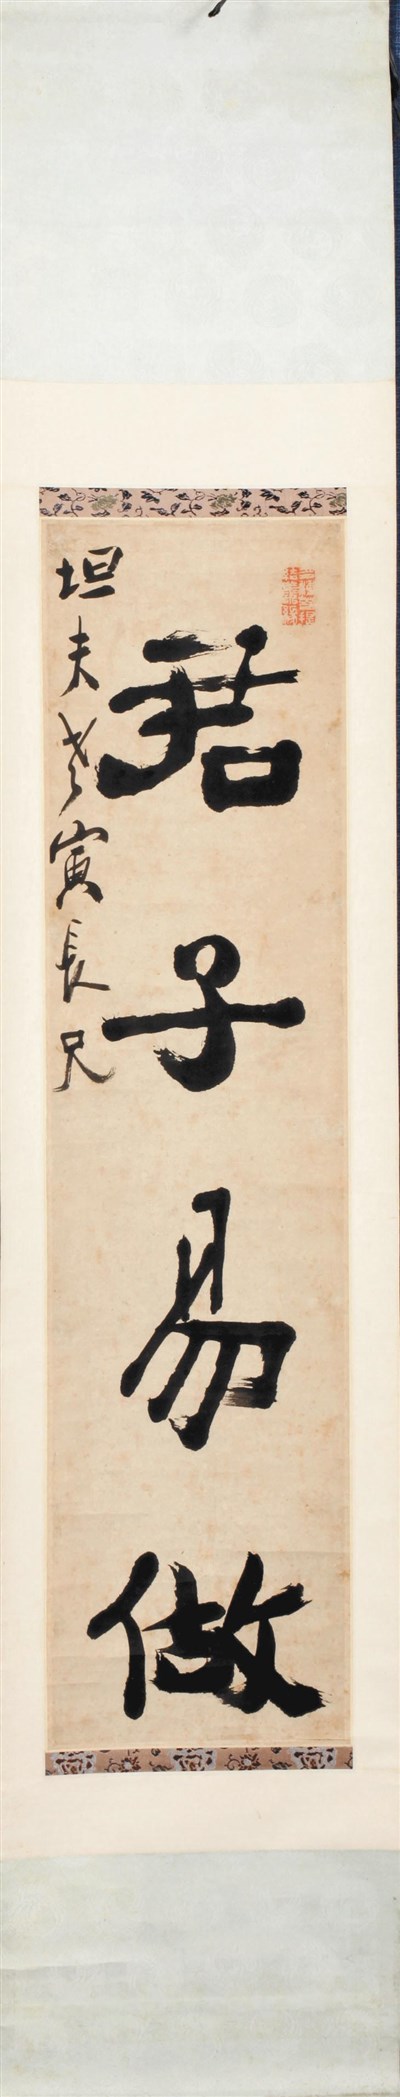 君子易做
坦夫老寅長兄